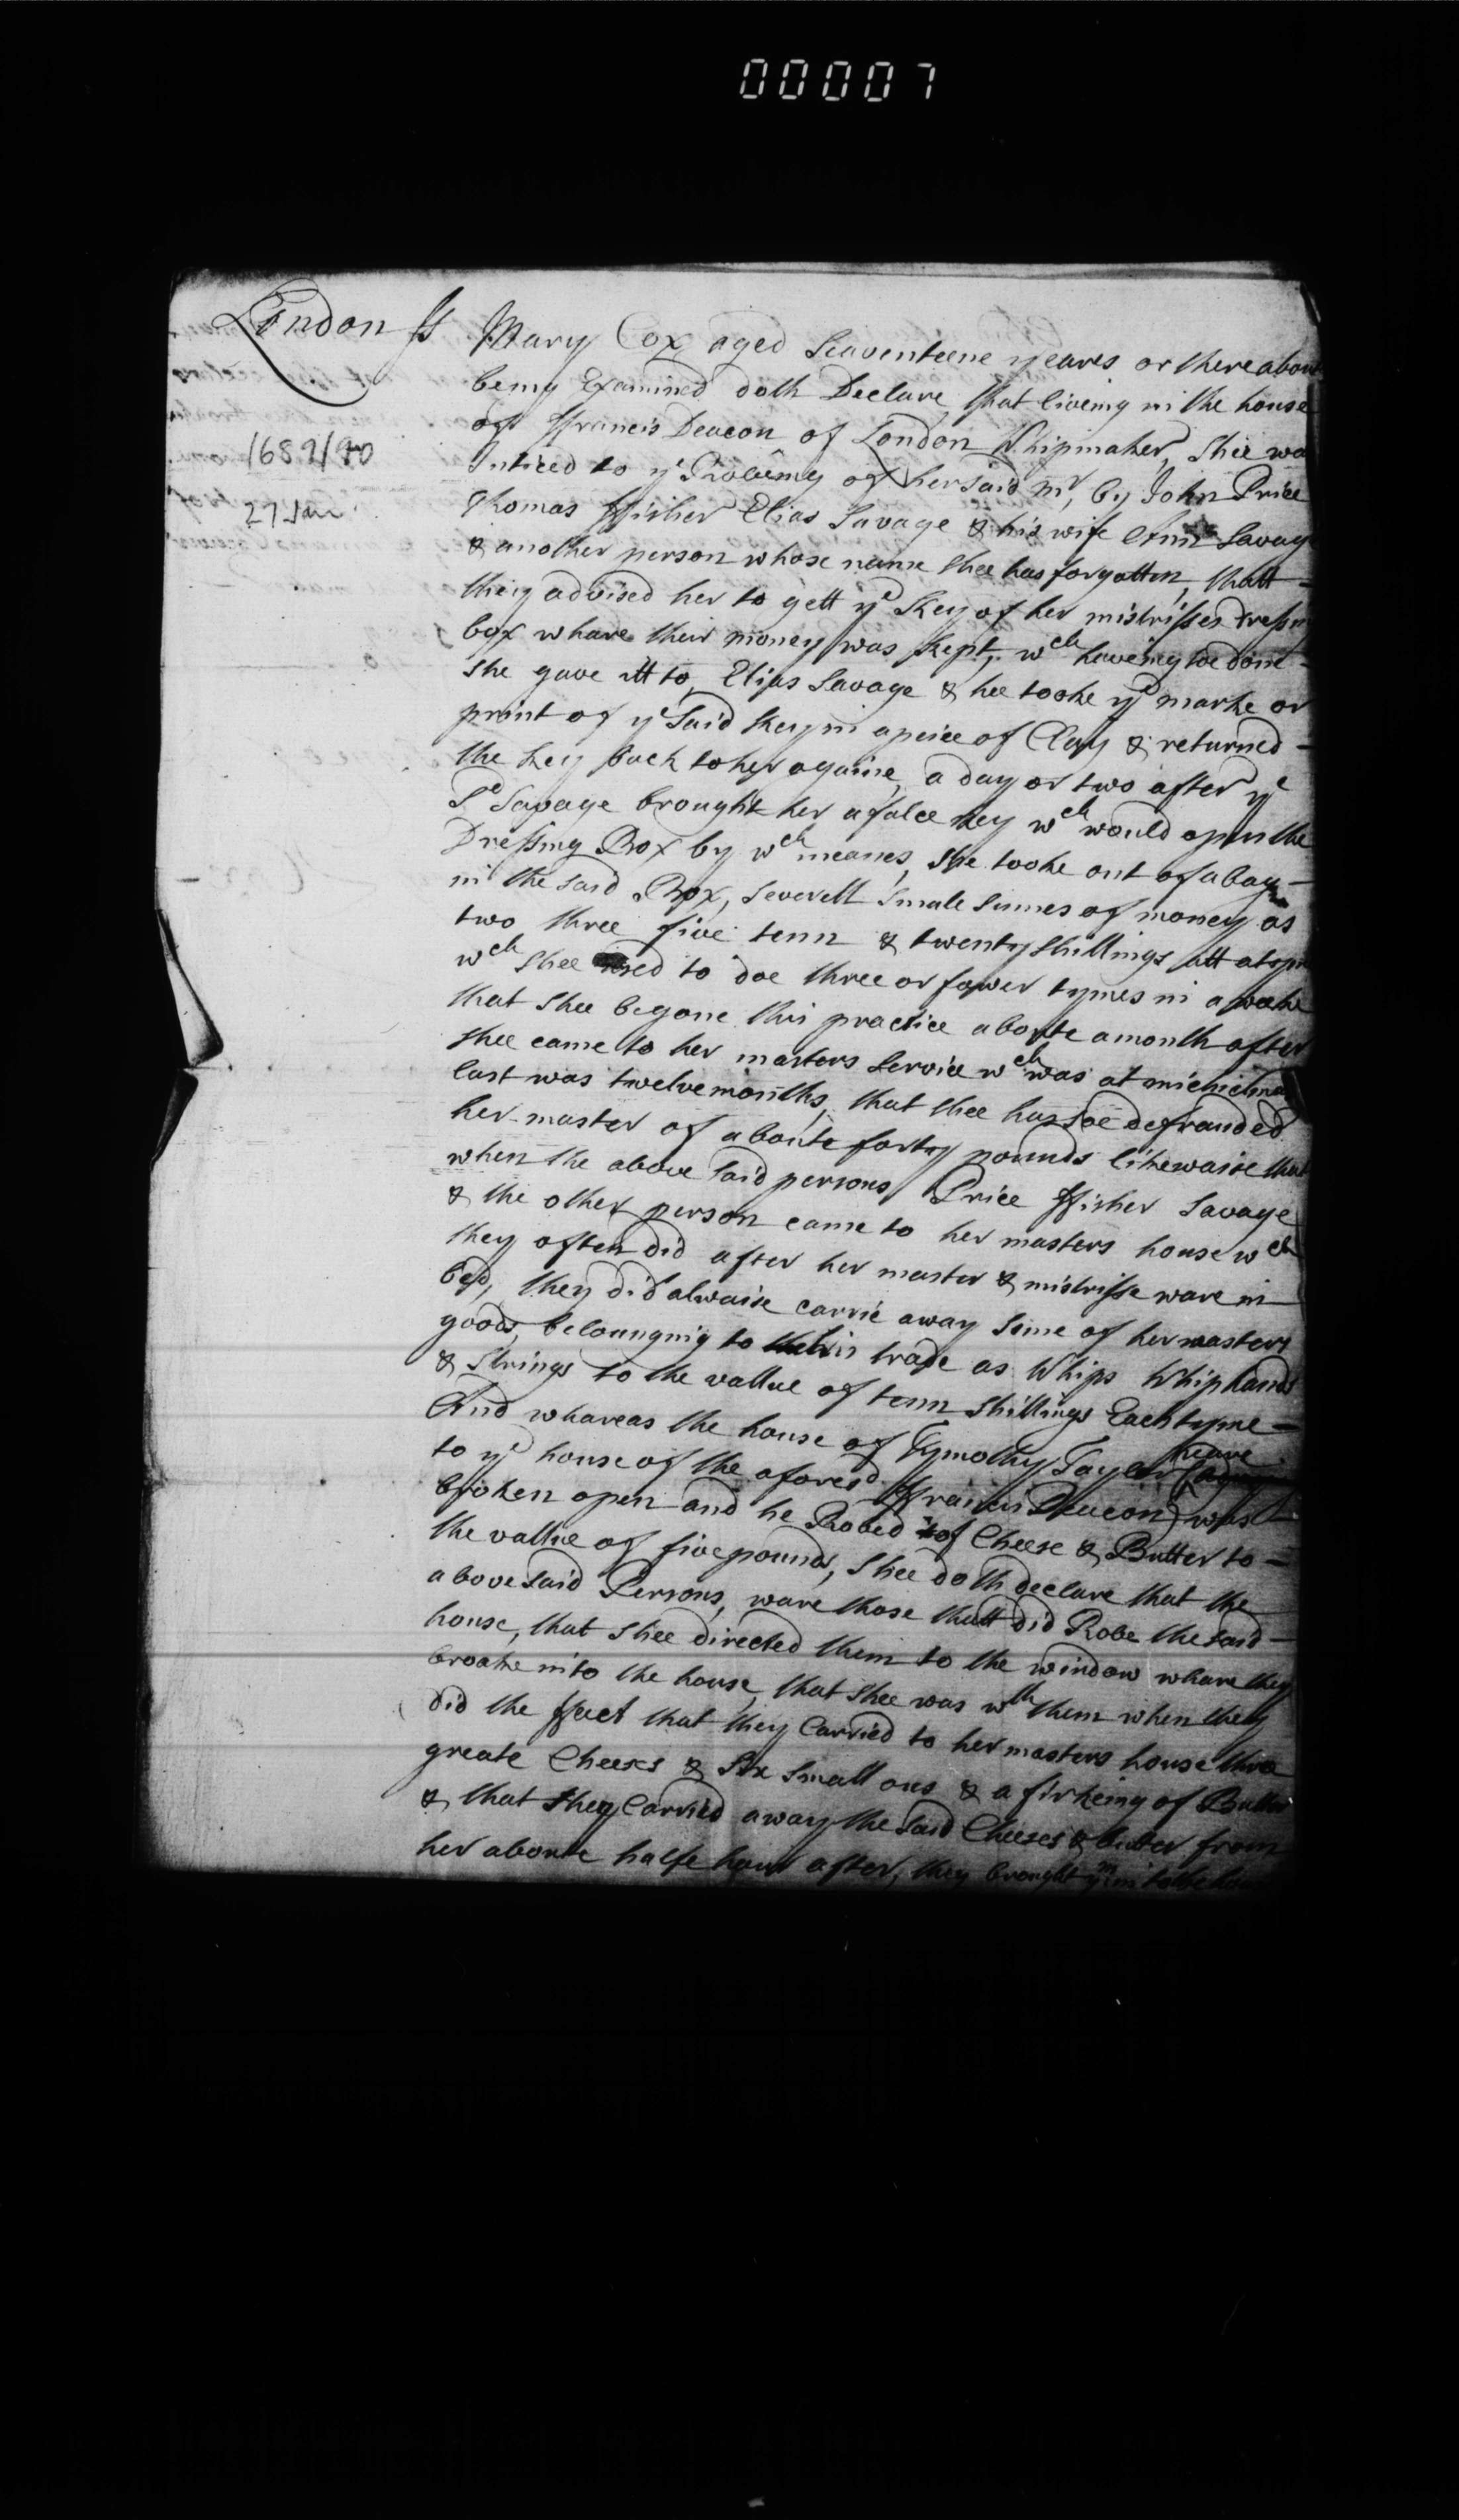 00007
London ss Mary Cox aged Seaventeene yeares or thereabout
being Examined doth Declare, that liveing in the house
off ffrancis Deacon of London Whipmaker, Shee was
Inticed to ye Robeing of her said Mr, by John Price
1689/90
Thomas ffisher Elias Savage & his wife Ann Savag
27 Jan
& another person whose name shee has forgotten, thatt -
theiy advised her to gett ye Key of her mistrisses dressin
box whare their money was kept, wch haveing soe done -
she gave itt to Elias Savage & hee tooke ye marke or
print of ye said Key in a peice of Clay & returned -
the Key back to her againe, a day or two after ye
Sd Savage brought her a falce key wch would open the
Dressing Box by wch meanes, she tooke out of a bag -
in the said Box, Severell Smale Sumes of money as
two three five tenn & twenty shillings att atyme
wch Shee used to doe three or fower tymes in a weeke
that shee begone this practice aboute a month after
shee came to her masters Service wch was at michelmas
last was twelve months, that shee has soe defrauded
her master of aboute forty pounds likewaise that
when the above said persons Price ffisher Savage
& the other person came to her masters house wch
they often did after her master & mistrisse ware in
bed, they did alwaise carrie away some of her masters
goods, beloungnig to his trade as Whips Whiphands
& Strings to the vallue of tenn shillings Each tyme -
And whareas the house of Tymothy Tayler (neare
to ye house of the aforesd ffrancis Deacon) was
broken open and he Robed of Cheese & Butter to -
the vallue of five pounds, Shee doth declare that the
above said Persons, ware those thatt did Robe the said -
house, that shee directed them to the window whare they
broake into the house, that shee was wth them when they
did the ffact that they Carried to her masters house three
greate Cheeses & Six Small ons & a firkeing of Butter
& that they Carried away the said Cheeses & butter from
her aboute halfe hour after, they brought ym in to the house